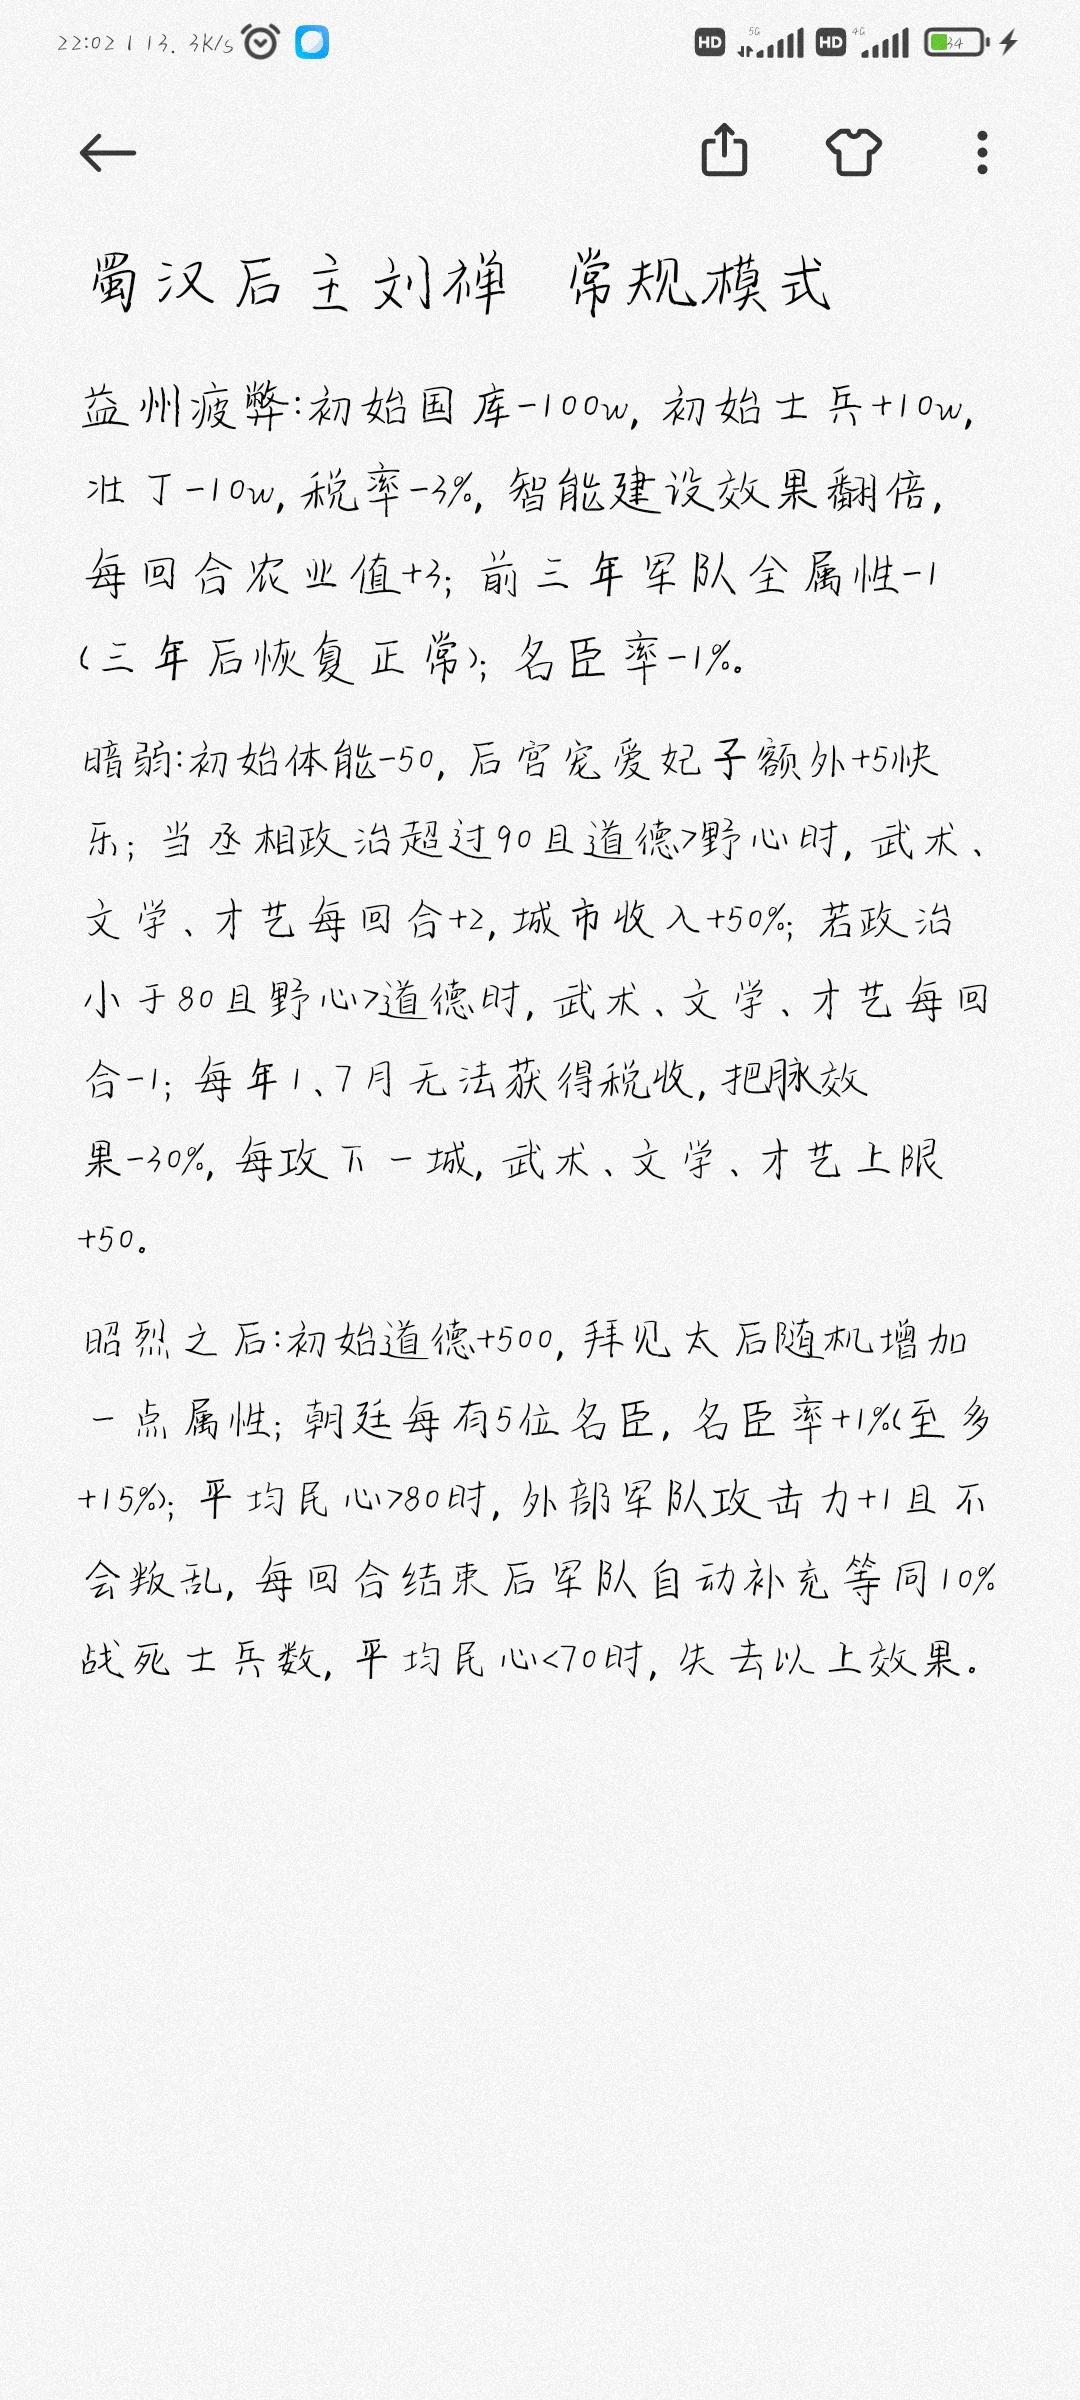 22:02 | 13. 3K/s HD 5G HD 4G 34
蜀汉后主刘禅 常规模式
益州疲弊:初始国库-100w, 初始士兵+10w,
壮丁-10w, 税率-3%, 智能建设效果翻倍,
每回合农业值+3; 前三年军队全属性-1
(三年后恢复正常); 名臣率-1%。
暗弱:初始体能-50, 后宫宠爱妃子额外+5快
乐; 当丞相政治超过90且道德>野心时, 武术、
文学、才艺每回合+2, 城市收入+50%; 若政治
小于80且野心>道德时, 武术、文学、才艺每回
合-1; 每年1、7月无法获得税收, 把脉效
果-30%, 每攻下一城, 武术、文学、才艺上限
+50。
昭烈之后:初始道德+500, 拜见太后随机增加
一点属性; 朝廷每有5位名臣, 名臣率+1%(至多
+15%); 平均民心>80时, 外部军队攻击力+1且不
会叛乱, 每回合结束后军队自动补充等同10%
战死士兵数, 平均民心<70时, 失去以上效果。